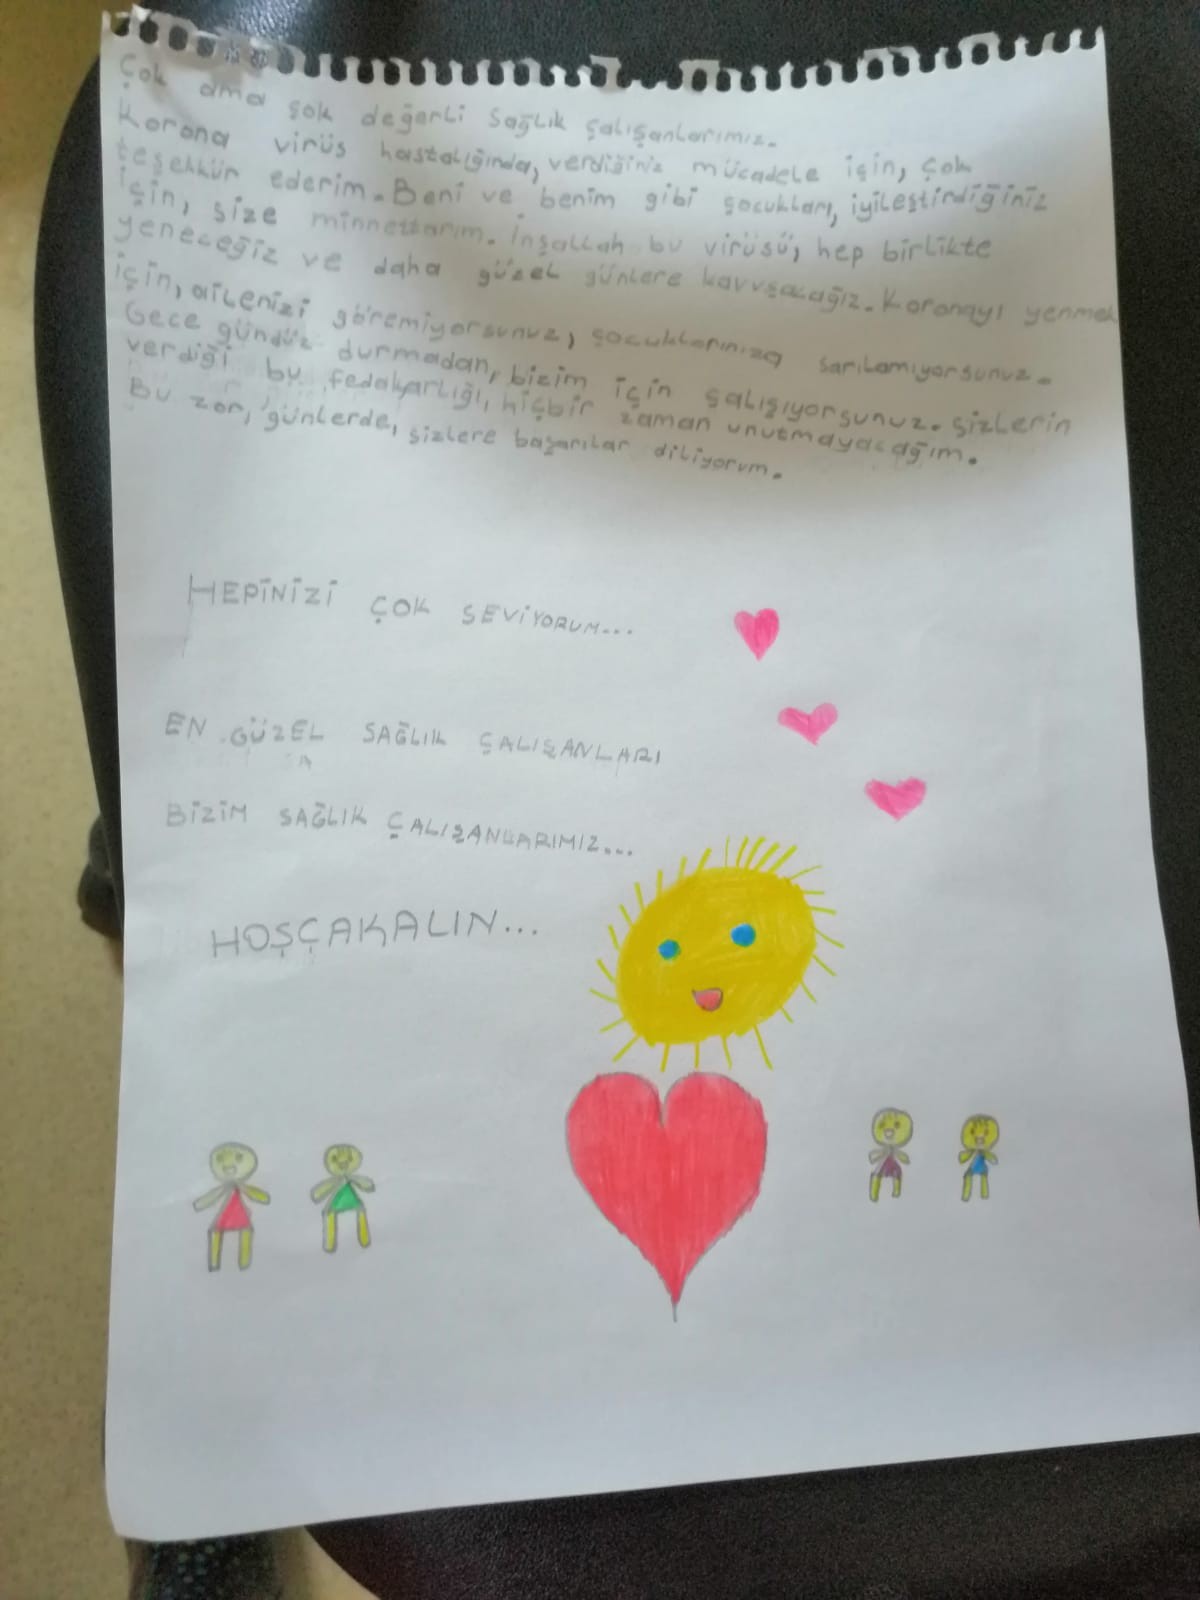 Çok ama çok değerli sağlık çalışanlarımız.
Korona virüs hastalığında, verdiğiniz mücadele için, çok
teşekkür ederim. Beni ve benim gibi çocukları, iyileştirdiğiniz
için, size minnettarım. İnşallah bu virüsü, hep birlikte
yeneceğiz ve daha güzel günlere kavuşacağız. Koronayı yenmek
için, ailenizi göremiyorsunuz, çocuklarınıza sarılamıyorsunuz.
Gece gündüz durmadan, bizim için çalışıyorsunuz. Sizlerin
verdiği bu fedakarlığı, hiçbir zaman unutmayacağım.
Bu zor, günlerde, sizlere başarılar diliyorum.
HEPİNİZİ ÇOK SEVİYORUM...
EN GÜZEL SAĞLIK ÇALIŞANLARI
BİZİM SAĞLIK ÇALIŞANLARIMIZ...
HOŞÇAKALIN...